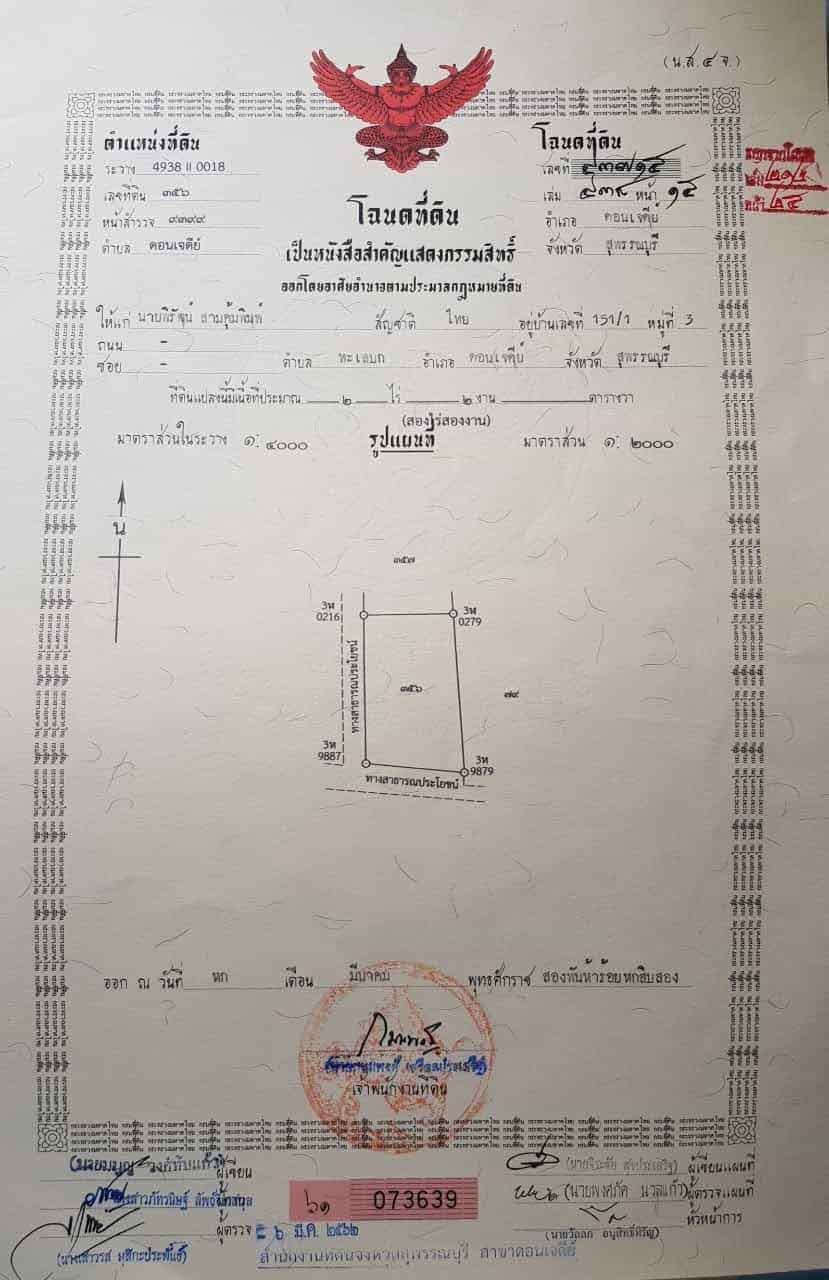 (น.ส.๔ จ.)
ตำแหน่งที่ดิน
ระวาง 4938 II 0018
เลขที่ดิน ๓๕๖
หน้าสำรวจ ๙๓๙๙
ตำบล ดอนเจดีย์
โฉนดที่ดิน
เลขที่ ๔๓๗๑๕
เล่ม ๔๓๙ หน้า ๑๕
อำเภอ ดอนเจดีย์
จังหวัด สุพรรณบุรี
โฉนดที่ดิน
เป็นหนังสือสำคัญแสดงกรรมสิทธิ์
ออกโดยอาศัยอำนาจตามประมวลกฎหมายที่ดิน
ให้แก่ นายพิรัชุน์ สามคุ้มพิมพ์ สัญชาติ ไทย อยู่บ้านเลขที่ 151/1 หมู่ที่ 3
ถนน -
ซอย - ตำบล ทะเลบก อำเภอ ดอนเจดีย์ จังหวัด สุพรรณบุรี
ที่ดินแปลงนี้มีเนื้อที่ประมาณ ๒ ไร่ ๒ งาน ตารางวา
(สองไร่สองงาน)
มาตราส่วนในระวาง ๑: ๔๐๐๐ รูปแผนที่ มาตราส่วน ๑: ๒๐๐๐
น
๓๕๗
3ห
0216
3ห
0279
ทางสาธารณประโยชน์
๓๕๖
๗๙
3ห
9887
3ห
9879
ทางสาธารณประโยชน์
ออก ณ วันที่ หก เดือน มีนาคม พุทธศักราช สองพันห้าร้อยหกสิบสอง
เจ้าพนักงานที่ดิน
ผู้เขียน
ผู้ตรวจ
๖ มี.ค. ๒๕๖๒
(นางเสาวรส มุสิกะประพันธ์)
073639
ผู้เขียนแผนที่
(นายพงศ์ภัค นวลแก้ว) ผู้ตรวจแผนที่
หัวหน้าการ
สำนักงานที่ดินจังหวัดสุพรรณบุรี สาขาดอนเจดีย์